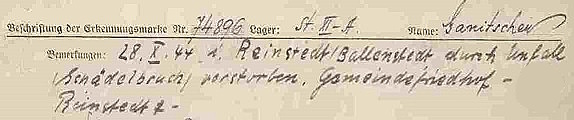 Beschriftung der Erkennungsmarke Nr. 74896 Lager: St. III-A. Name: Ganitschew
Bemerkungen: 28. X. 44 i. Reinstedt/Ballenstedt durch Unfall
(Schädelbruch) verstorben. Gemeindefriedhof -
Reinstedt